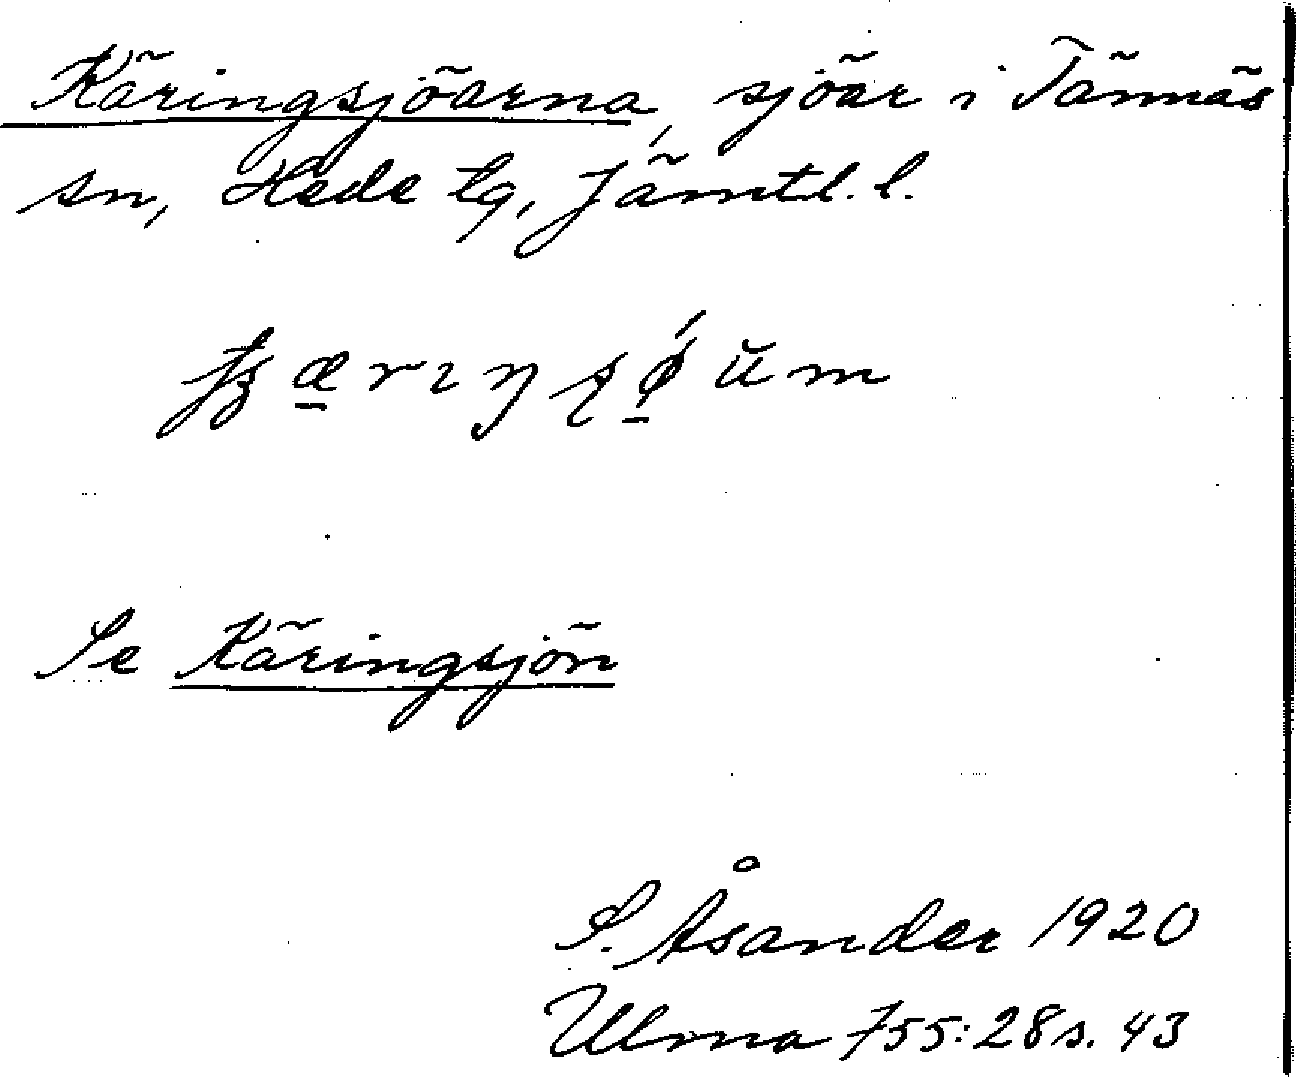 Käringsjöarna, sjöar i Tännäs
sn, Hede tg, Jämtl. l.
Se Käringsjön
S. Åsander 1920
Ulma 755:28 s. 43